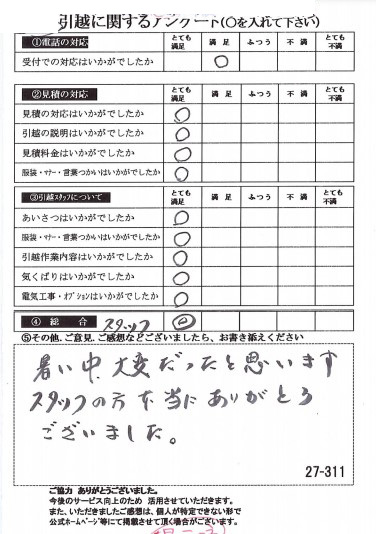 引越に関するアンケート(○を入れて下さい)
①電話の対応 とても満足 満足 ふつう 不満 とても不満
受付での対応はいかがでしたか ○
②見積の対応 とても満足 満足 ふつう 不満 とても不満
見積の対応はいかがでしたか ○
引越の説明はいかがでしたか ○
見積料金はいかがでしたか ○
服装・マナー・言葉つかいはいかがでしたか ○
③引越スタッフについて とても満足 満足 ふつう 不満 とても不満
あいさつはいかがでしたか ○
服装・マナー・言葉つかいはいかがでしたか ○
引越作業内容はいかがでしたか ○
気くばりはいかがでしたか ○
電気工事・オプションはいかがでしたか ○
④総合 スタッフ ◎
⑤その他、ご意見、ご感想などございましたら、お書き添えください
暑い中、大変だったと思います
スタッフの方本当にありがとう
ございました。
27-311
ご協力 ありがとうございました。
今後のサービス向上のため 活用させていただきます。
また、いただきましたご感想は、個人が特定できない形で
公式ホームページ等にて掲載させて頂く場合がございます。